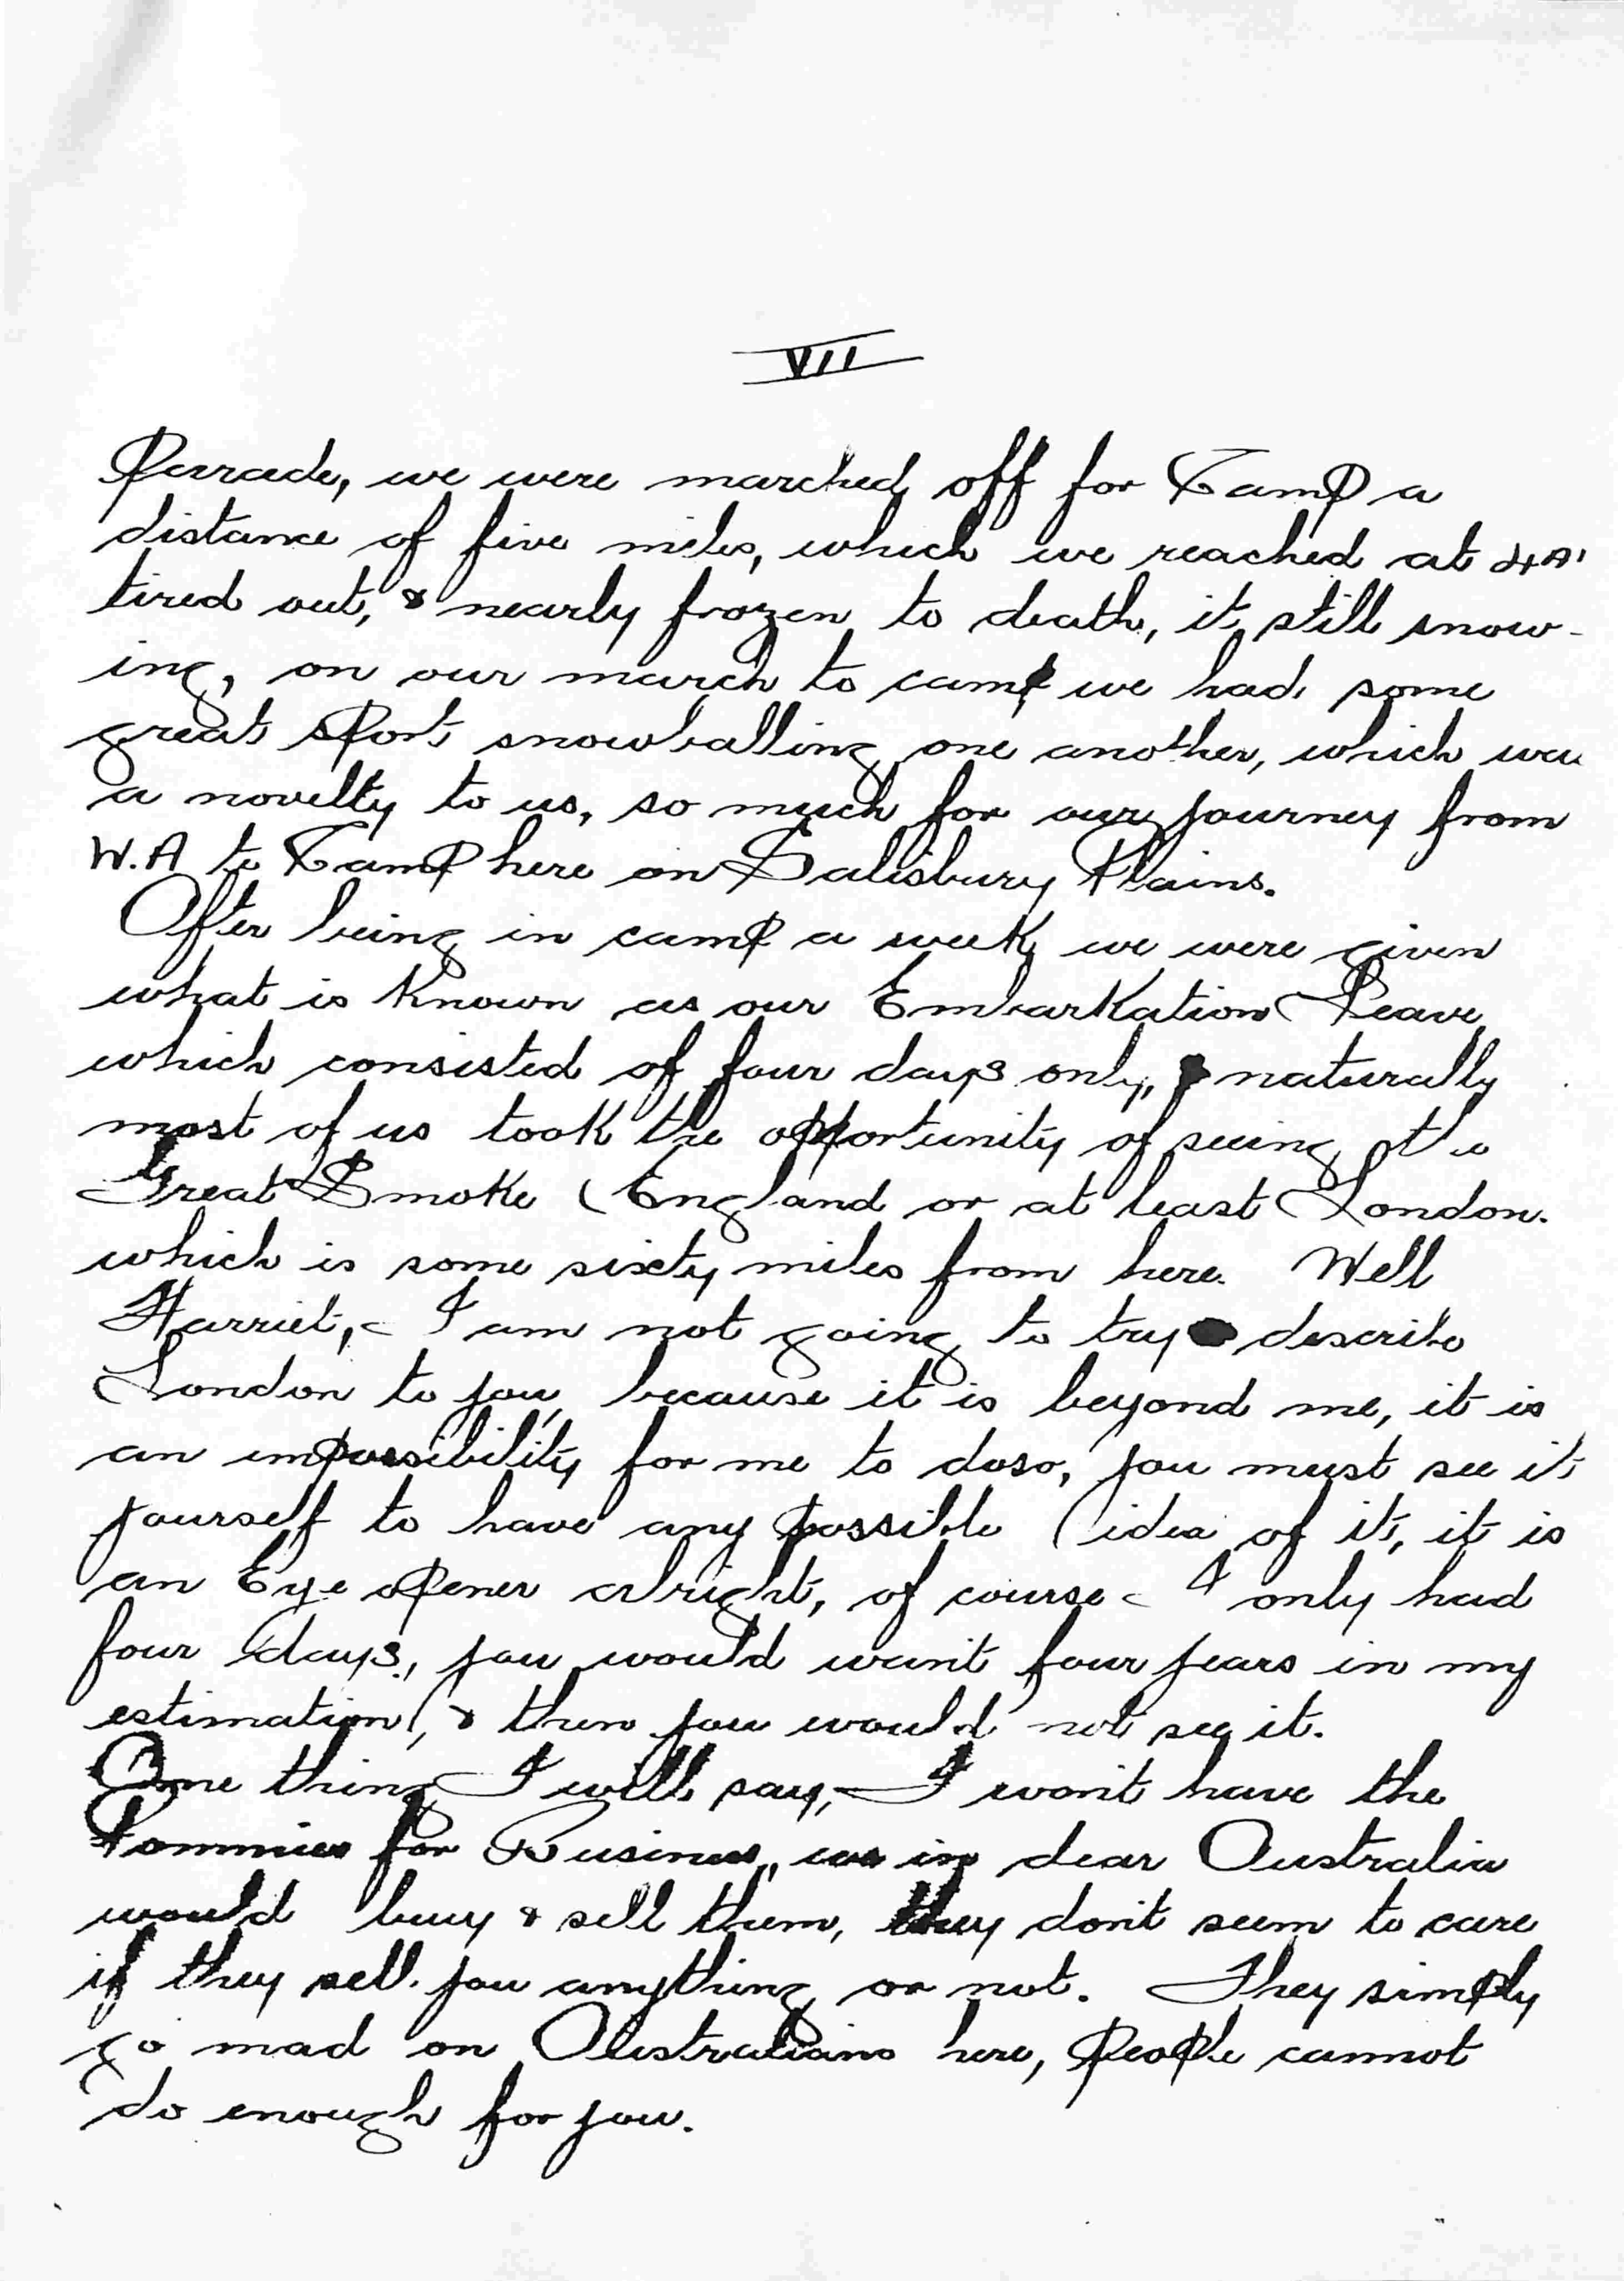 VII
Parade, we were marched off for Camp a
distance of five miles, which we reached at 4 A
tired out, & nearly frozen to death, it still snow-
ing, on our march to camp we had some
great sport snowballing one another, which was
a novelty to us, so much for our journey from
W.A to Camp here on Salisbury Plains.
After being in camp a week we were given
what is known as our Embarkation Leave
which consisted of four days only, naturally
most of us took the opportunity of seeing the
Great Smoke (England or at least London.
which is some sixty miles from here. Well
Harriet, I am not going to try describe
London to you, because it is beyond me, it is
an impossibility for me to doso, you must see it
yourself to have any possible idea of it, it is
an Eye opener alright, of course I only had
four days, you would want four years in my
estimation, & then you would not see it.
One thing I will say, I won't have the
Pommies for Business, we in dear Australia
would buy & sell them, they don't seem to care
if they sell you anything or not. They simply
go mad on Australians here, people cannot
do enough for you.